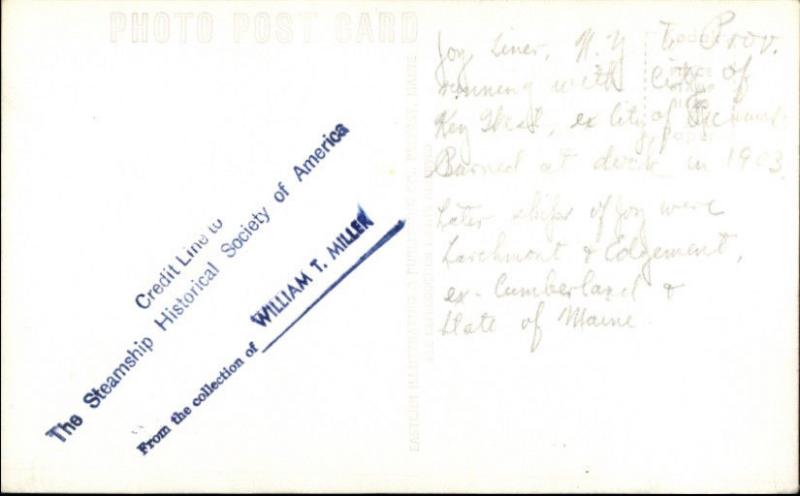 PHOTO POST CARD
Credit Line to
The Steamship Historical Society of America
From the collection of WILLIAM T. MILLER
Joy Liner, N.Y. to Prov.
running with City of
Key West, ex City of
Burned at dock in 1903.
Later ships of Joy were
Larchmont & Edgemont,
ex-Cumberland &
State of Maine.